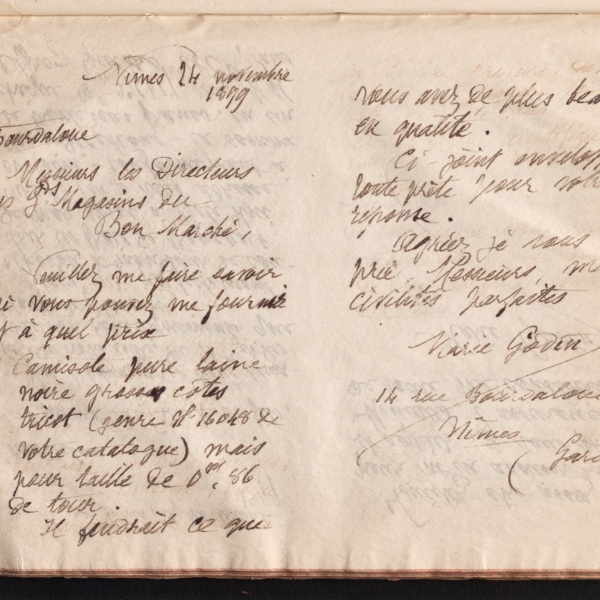 Nîmes 24 novembre
1899
Bourdaloue
Messieurs les Directeurs
es Gds Magasins du
Bon Marché,
Veuillez me faire savoir
si vous pouvez me fournir
et à quel prix
Camisole pure laine
noire grosses côtes
tricot (genre No 16048 de
votre catalogue) mais
pour taille de 0m,86
de tour.
Il faudrait ce que
vous avez de plus bea
en qualité.
Ci joint envelop
toute prête pour vot
réponse.
Agréez je vous
prie Messieurs m
civilités parfaites
Marie Godin
14 rue Bourdaloue
Nîmes
(Gar